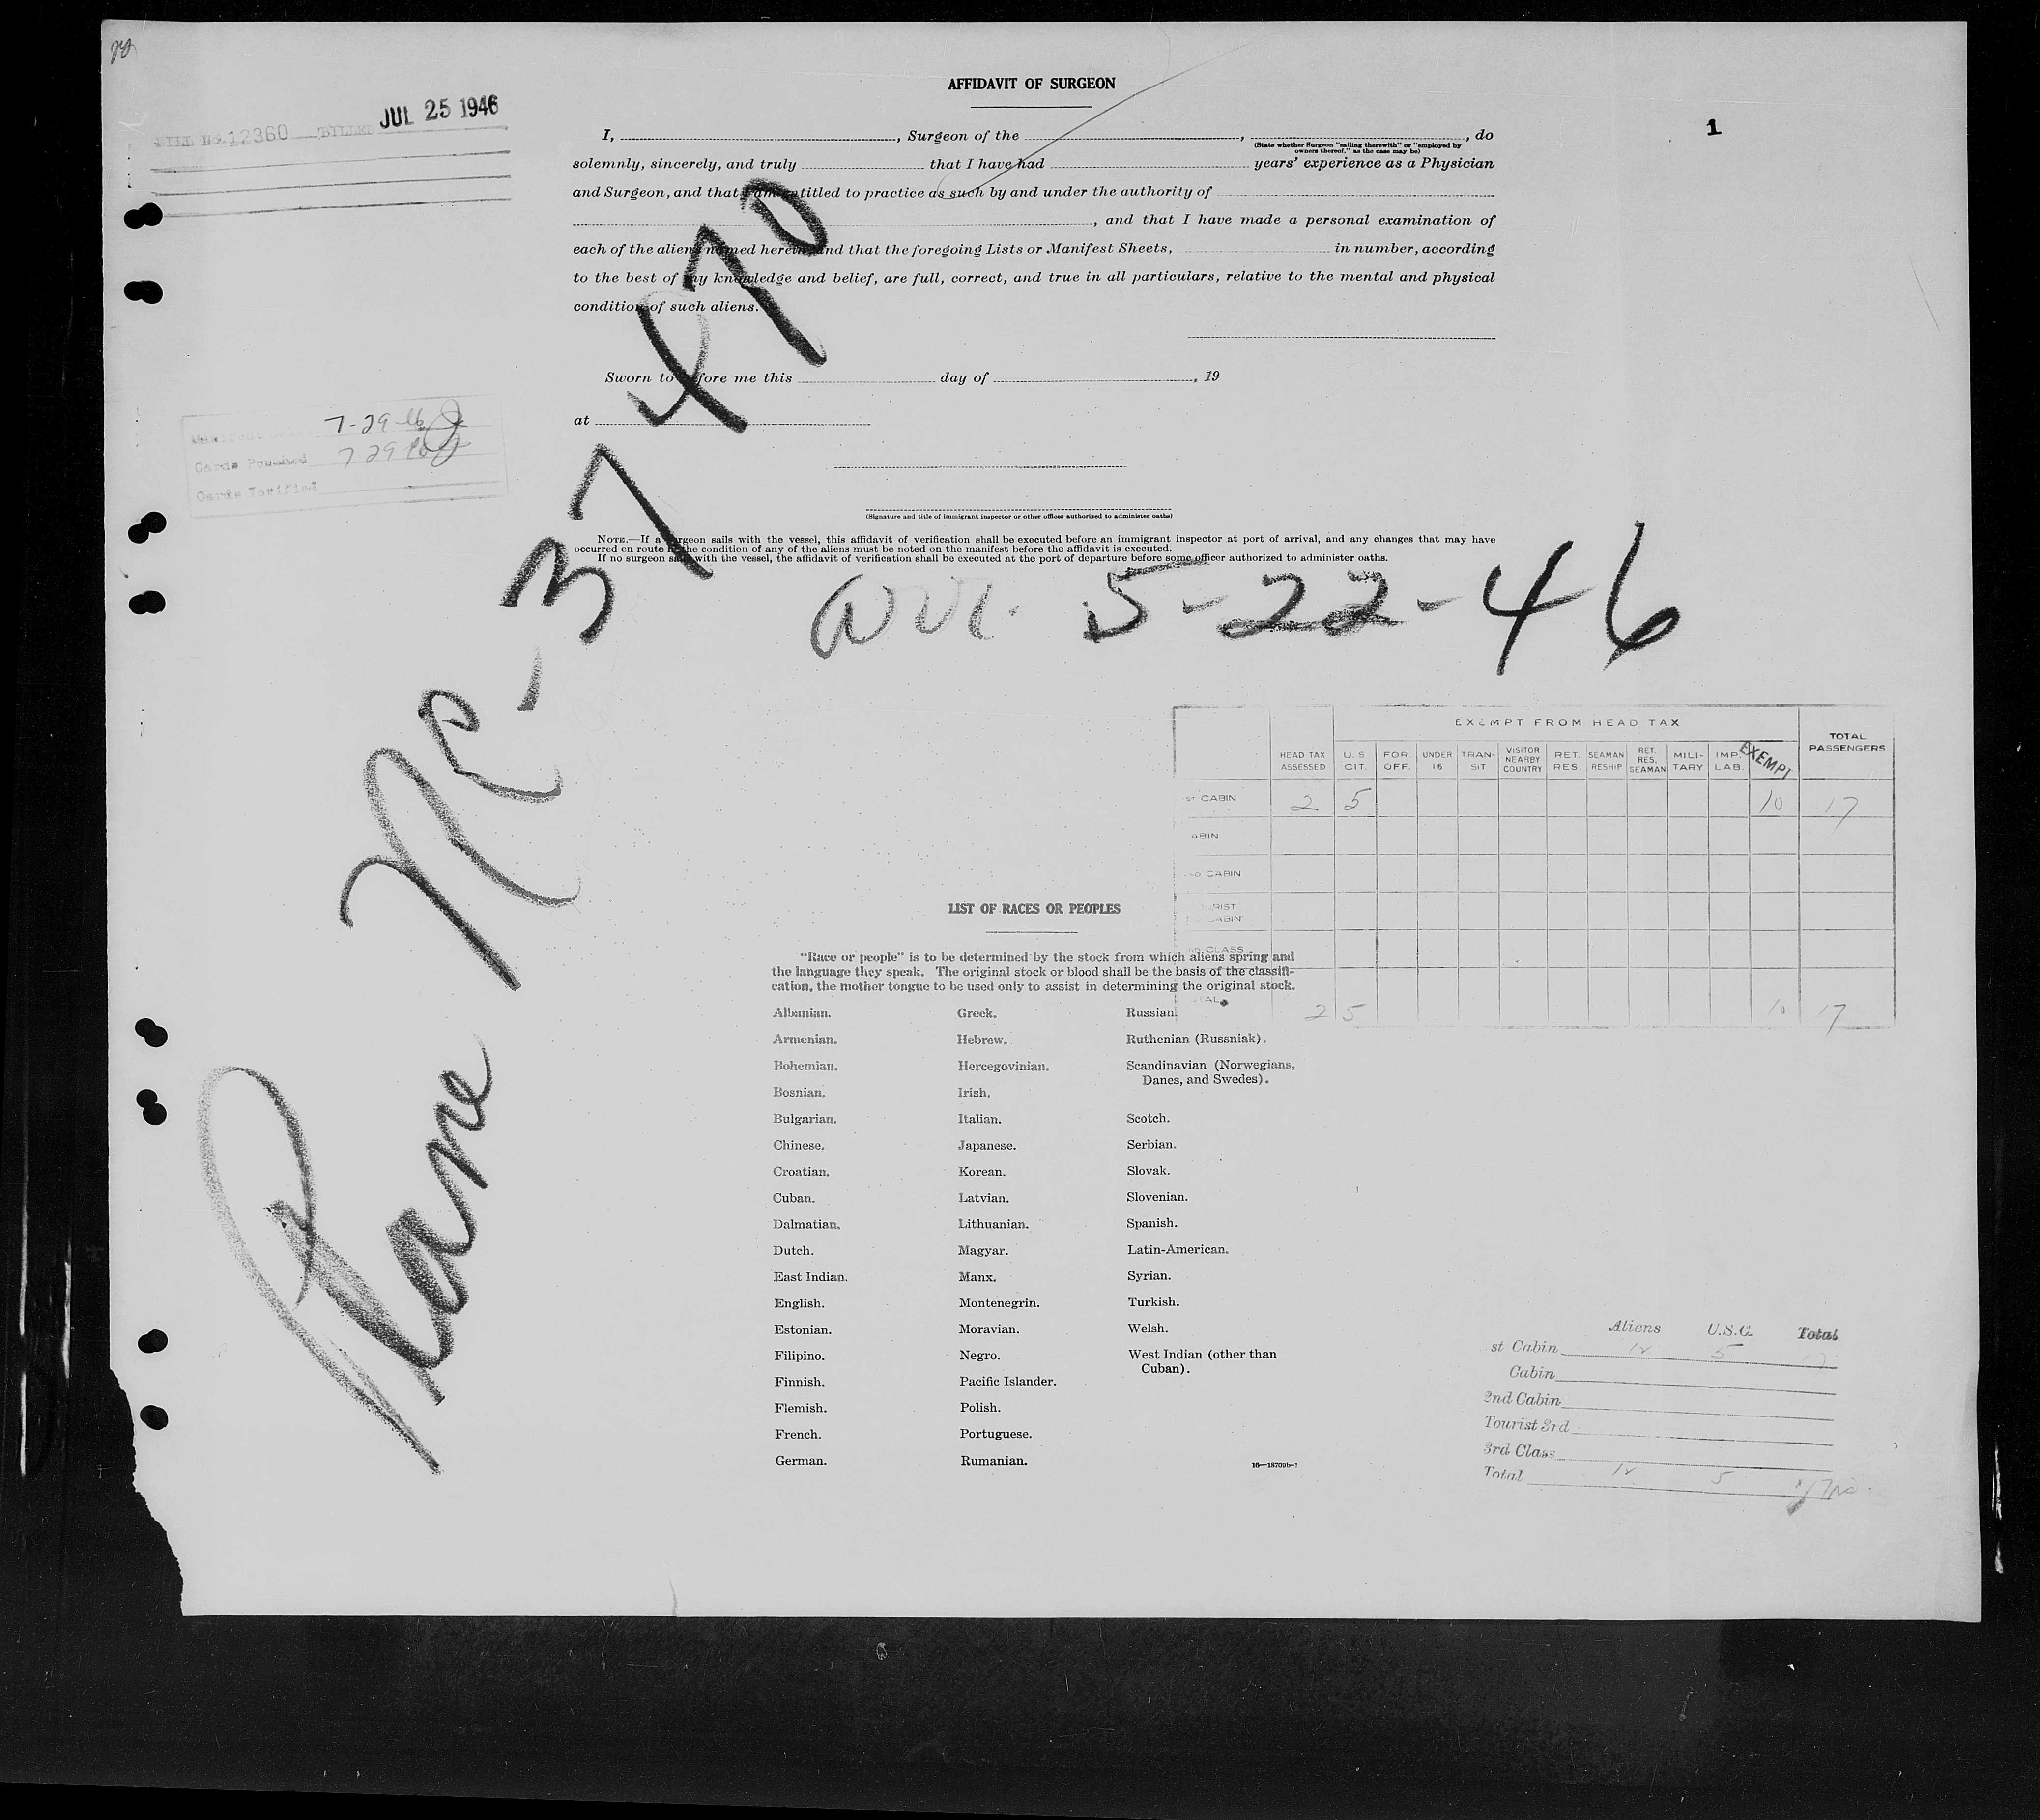 AFFIDAVIT OF SURGEON
1
BILL NO. 12360 BILLED JUL 25 1946
I, , Surgeon of the , , do
(State whether Surgeon "sailing therewith" or "employed by
owners thereof," as the case may be)
solemnly, sincerely, and truly that I have had years' experience as a Physician
and Surgeon, and that I am entitled to practice as such by and under the authority of
, and that I have made a personal examination of
each of the aliens named herein and that the foregoing Lists or Manifest Sheets, in number, according
to the best of my knowledge and belief, are full, correct, and true in all particulars, relative to the mental and physical
condition of such aliens.
Sworn to before me this day of , 19
at
7-29-46
Cards Punched 7 29
Cards Verified
(Signature and title of immigrant inspector or other officer authorized to administer oaths)
NOTE.—If a surgeon sails with the vessel, this affidavit of verification shall be executed before an immigrant inspector at port of arrival, and any changes that may have
occurred en route in the condition of any of the aliens must be noted on the manifest before the affidavit is executed.
If no surgeon sails with the vessel, the affidavit of verification shall be executed at the port of departure before some officer authorized to administer oaths.
Plane NC-37470
arr. 5-22-46
EXEMPT FROM HEAD TAX
HEAD TAX ASSESSED U.S. CIT. FOR. OFF. UNDER 16 TRAN-SIT VISITOR NEARBY COUNTRY RET. RES. SEAMAN RESHIP RET. RES. SEAMAN MILI-TARY IMP. LAB. EXEMPT TOTAL PASSENGERS
1ST CABIN 2 5 10 17
CABIN
2ND CABIN
TOURIST
CABIN
3RD CLASS
TOTAL 2 5 10 17
LIST OF RACES OR PEOPLES
"Race or people" is to be determined by the stock from which aliens spring and
the language they speak. The original stock or blood shall be the basis of the classifi-
cation, the mother tongue to be used only to assist in determining the original stock.
Albanian.
Armenian.
Bohemian.
Bosnian.
Bulgarian.
Chinese.
Croatian.
Cuban.
Dalmatian.
Dutch.
East Indian.
English.
Estonian.
Filipino.
Finnish.
Flemish.
French.
German.
Greek.
Hebrew.
Hercegovinian.
Irish.
Italian.
Japanese.
Korean.
Latvian.
Lithuanian.
Magyar.
Manx.
Montenegrin.
Moravian.
Negro.
Pacific Islander.
Polish.
Portuguese.
Rumanian.
Russian.
Ruthenian (Russniak).
Scandinavian (Norwegians,
Danes, and Swedes).
Scotch.
Serbian.
Slovak.
Slovenian.
Spanish.
Latin-American.
Syrian.
Turkish.
Welsh.
West Indian (other than
Cuban).
Aliens U.S.C. Total
st Cabin 12 5 17
Cabin
2nd Cabin
Tourist 3rd
3rd Class
Total 12 5 17